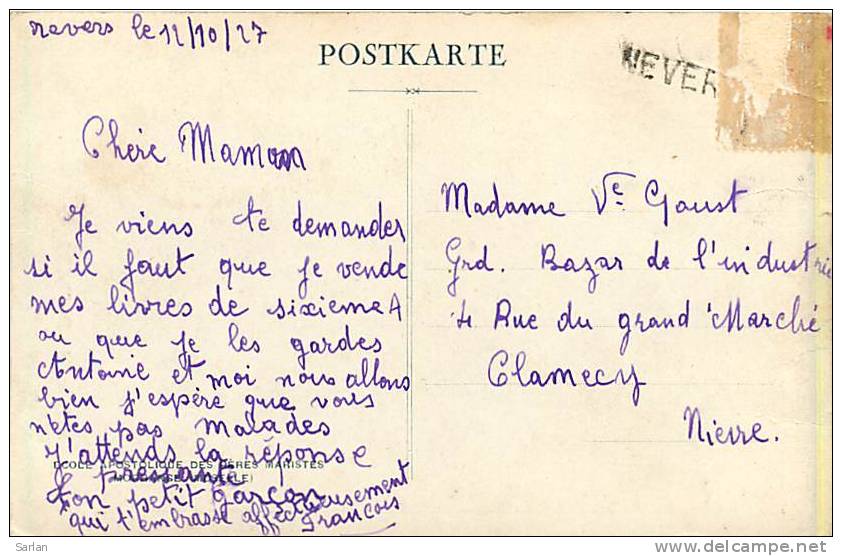 nevers le 12/10/27
POSTKARTE
NEVER
Chère Maman
Je viens te demander
si il faut que je vende
mes livres de sixieme A
ou que je les gardes
Antoine et moi nous allons
bien j'espère que vous
n'etes pas malades
J'attends la réponse
pressante
Ton petit garçon
qui t'embrasse affectueusement
Francois
ECOLE APOSTOLIQUE DES PÈRES MARISTES
Madame Ve Goust
Grd. Bazar de l'industrie
4 Rue du grand Marché
Clamecy
Nievre.
Sarlan
www.delcampe.net